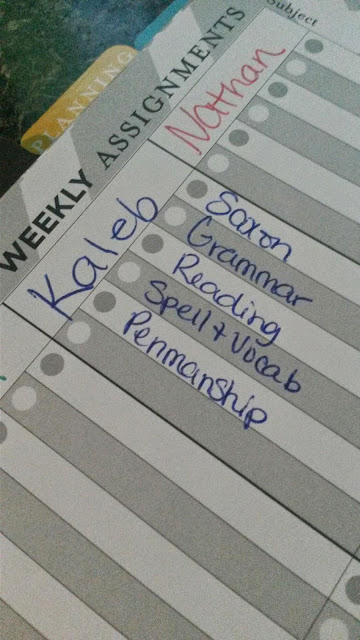 PLANNING
WEEKLY ASSIGNMENTS
Subject
Nathan
Kaleb
Saxon
Grammar
Reading
Spell & Vocab
Penmanship